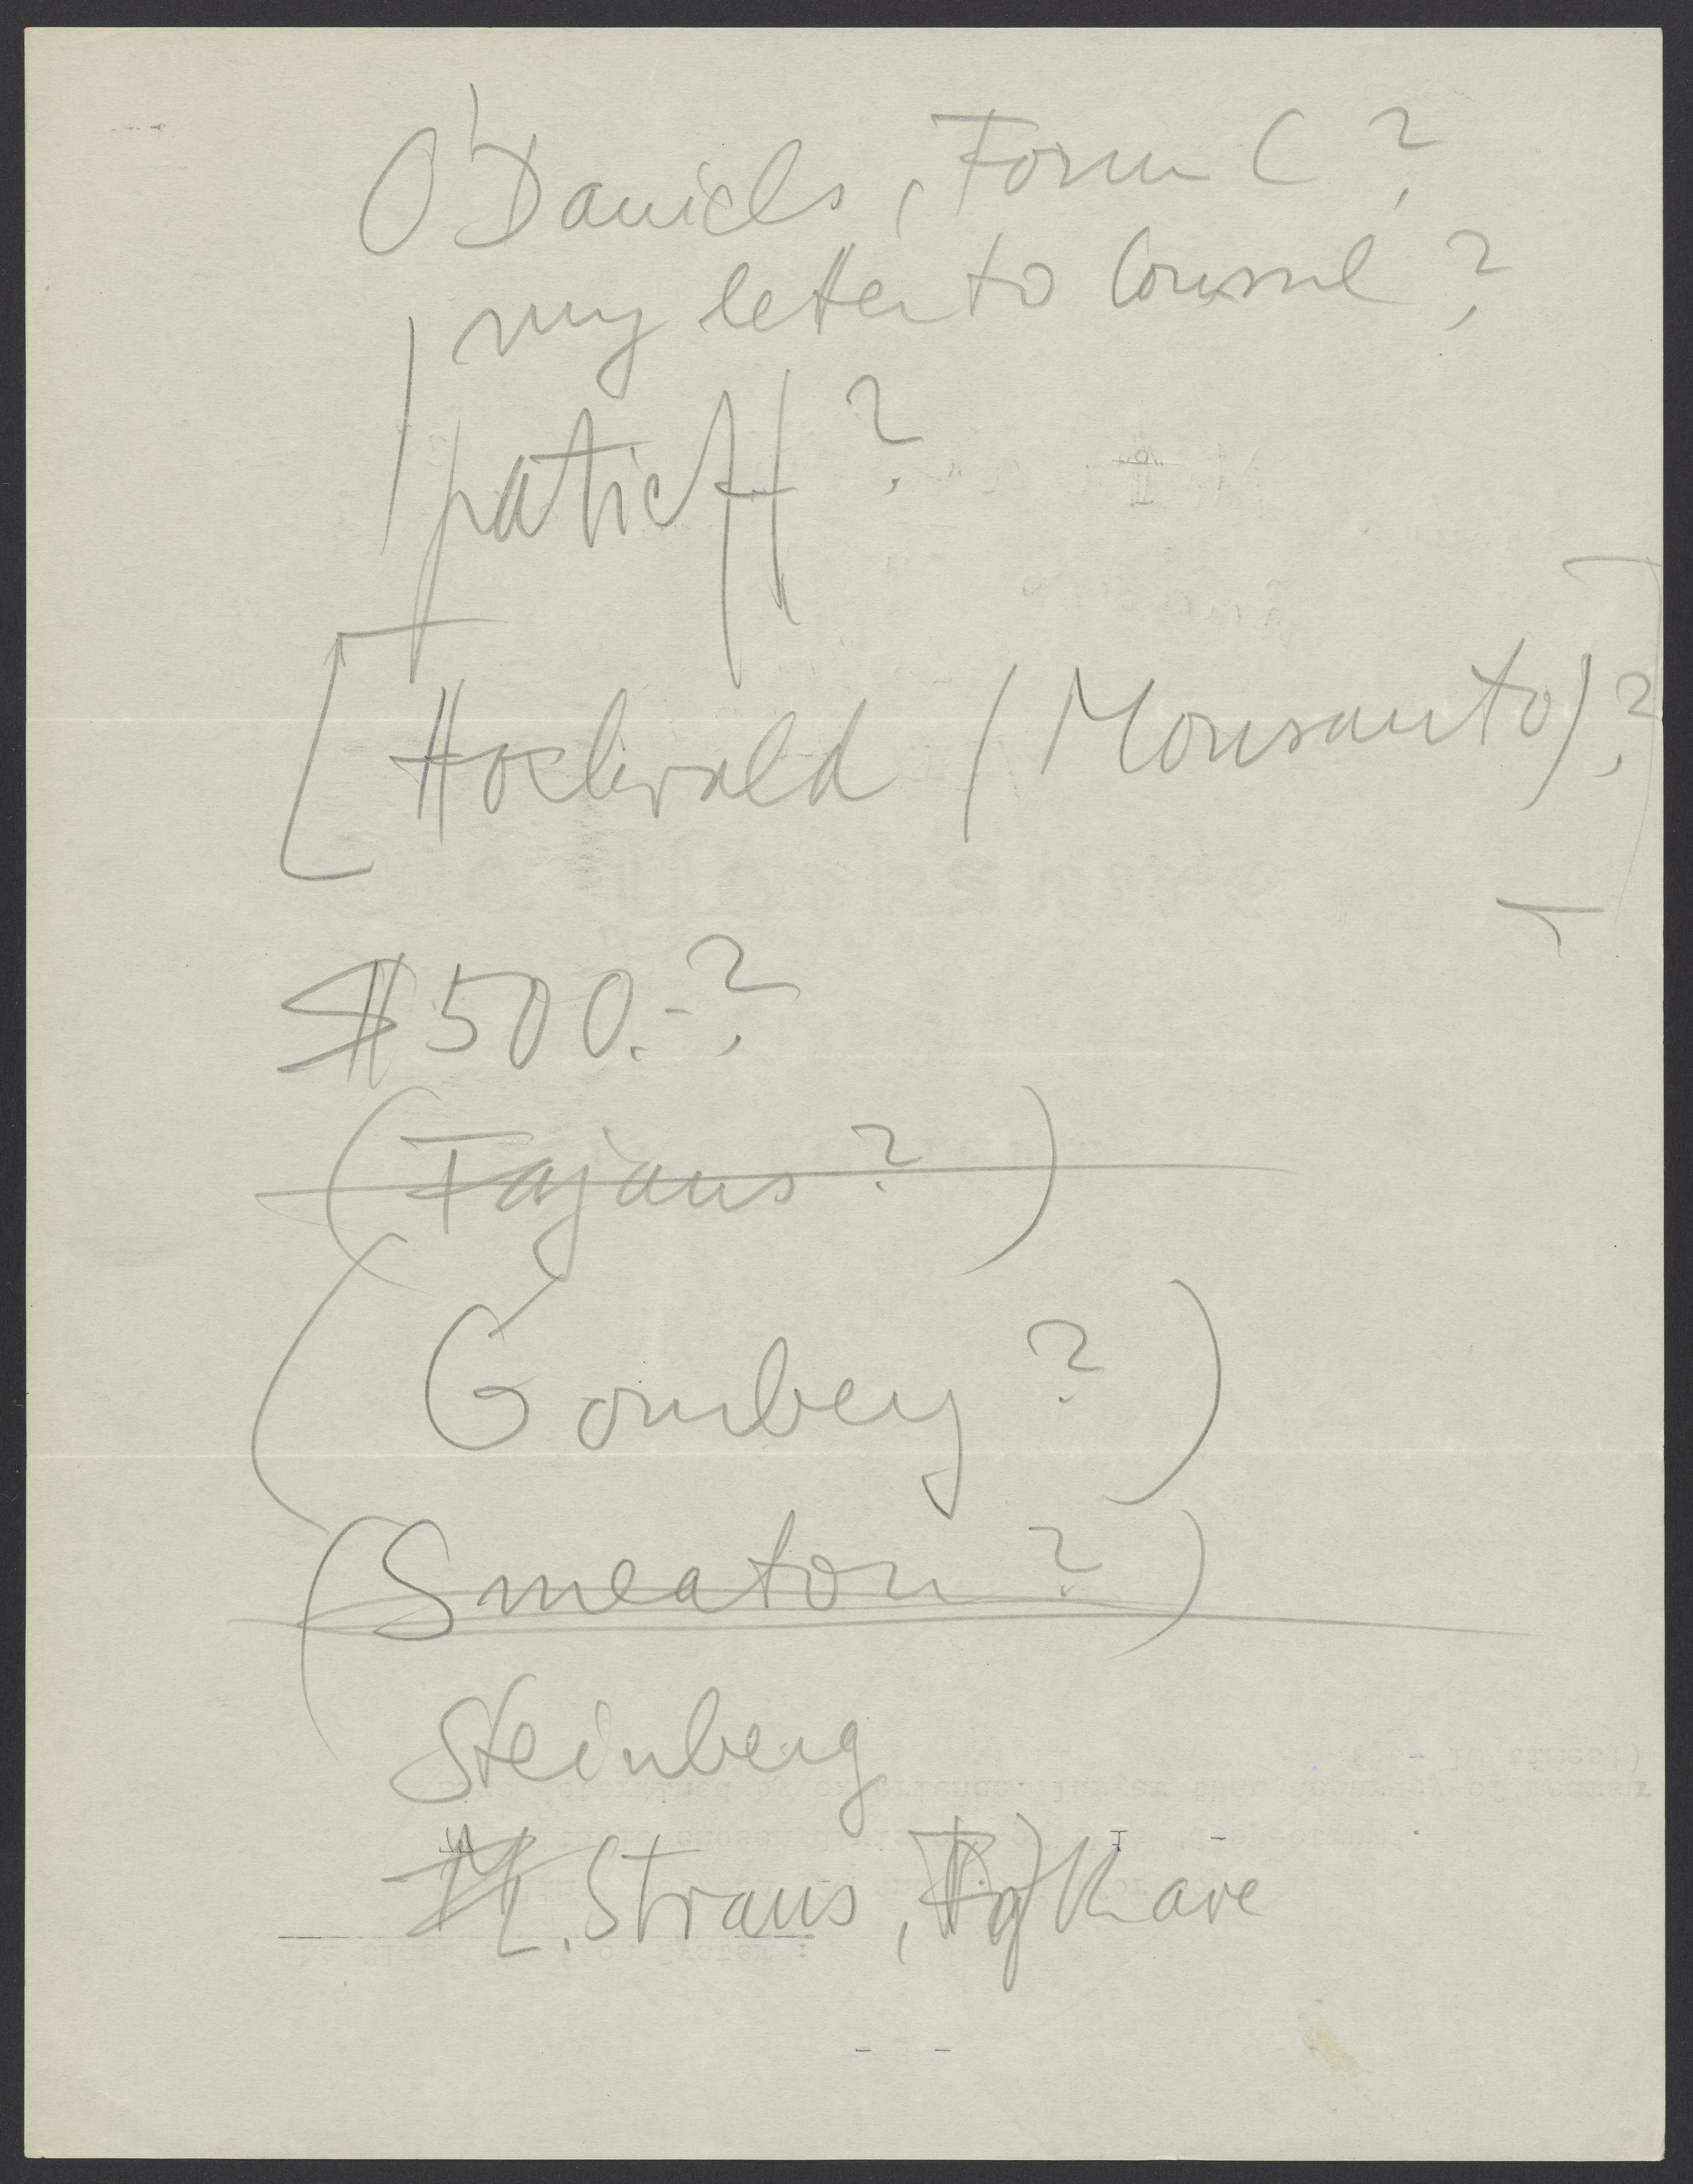 O'Daniels, Form C?
my letter to Consul?
Ipatieff?
[Hochwald (Monsanto)?]
$500.-?
(Fajans?)
(Gomberg?)
(Smeaton?)
Steinberg
L. Straus,